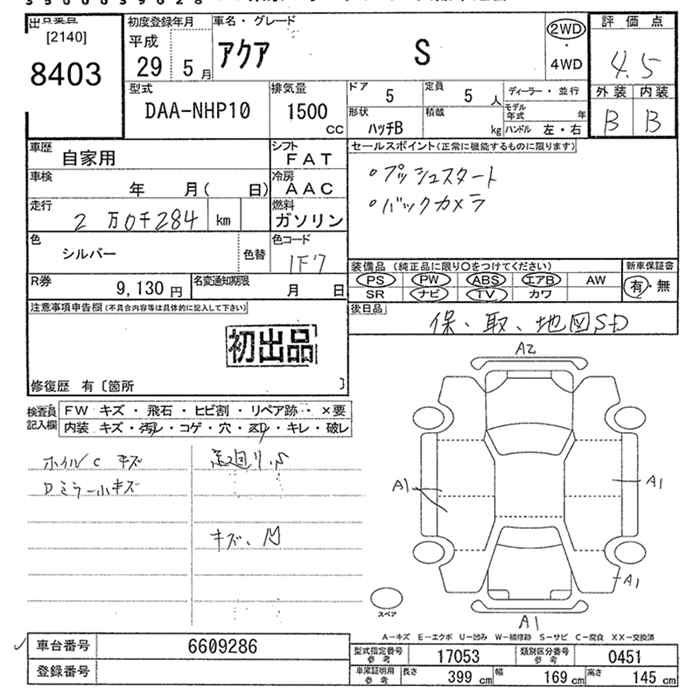 [2140]
8403
初度登録年月
平成
29 5月
車名・グレード
アクア S
2WD
・
4WD
評価点
4.5
外装 内装
B B
型式
DAA-NHP10
排気量
1500
CC
ドア 5
定員 5 人
ディーラー・並行
形状 ハッチB
積載 kg
モデル年式 年
ハンドル 左・右
車歴 自家用
シフト FAT
車検 年 月( 日)
冷房 AAC
走行 2万0千284 km
燃料 ガソリン
色 シルバー
色替
色コード 1F7
R券 9,130円
名変通知期限 月 日
セールスポイント(正常に機能するものに限ります)
・プッシュスタート
・バックカメラ
装備品(純正品に限り○をつけてください)
新車保証書
PS PW ABS エアB AW
SR ナビ TV カワ
有・無
後日品
保、取、地図SD
注意事項申告欄(不具合内容等は具体的に記入して下さい)
初出品
修復歴 有〔箇所 〕
検査員記入欄
FW キズ・飛石・ヒビ割・リペア跡・×要
内装 キズ・汚レ・コゲ・穴・スレ・キレ・破レ
ホイルC キズ
Dミラー小キズ
足廻りS
キズ、凹
A2
A1
A1
A1
A1
スペア
A-キズ E-エクボ U-凹み W-補修跡 S-サビ C-腐食 XX-交換済
車台番号 6609286
登録番号
型式指定番号 参考 17053
類別区分番号 参考 0451
車庫証明用 参考
長さ 399 cm
幅 169 cm
高さ 145 cm